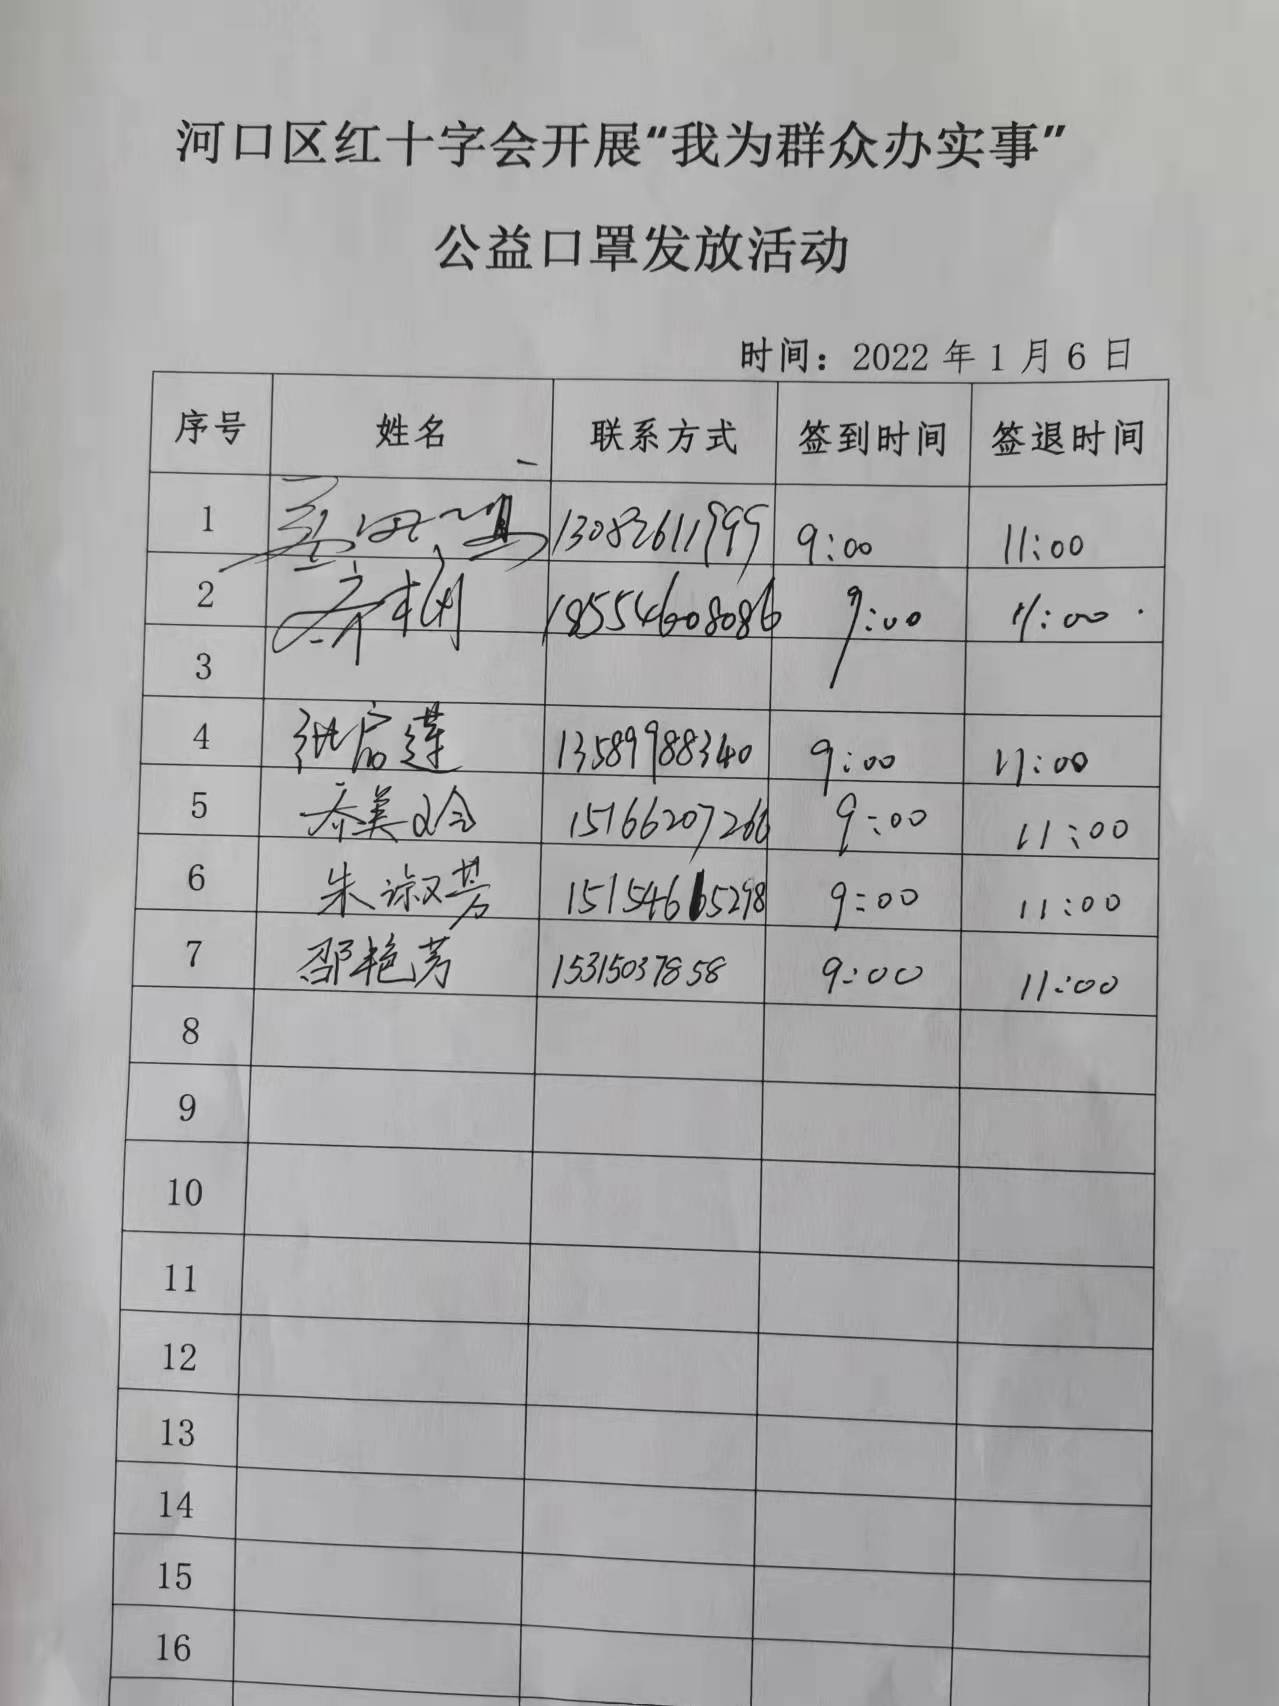 河口区红十字会开展“我为群众办实事”
公益口罩发放活动
时间：2022 年 1 月 6 日
序号 姓名 联系方式 签到时间 签退时间
1 13082611999 9:00 11:00
2 18554608086 9:00 11:00
3
4 13589988340 9:00 11:00
5 乔美玲 15166207266 9:00 11:00
6 朱淑芳 15154665298 9:00 11:00
7 邵艳芳 15315037858 9:00 11:00
8
9
10
11
12
13
14
15
16